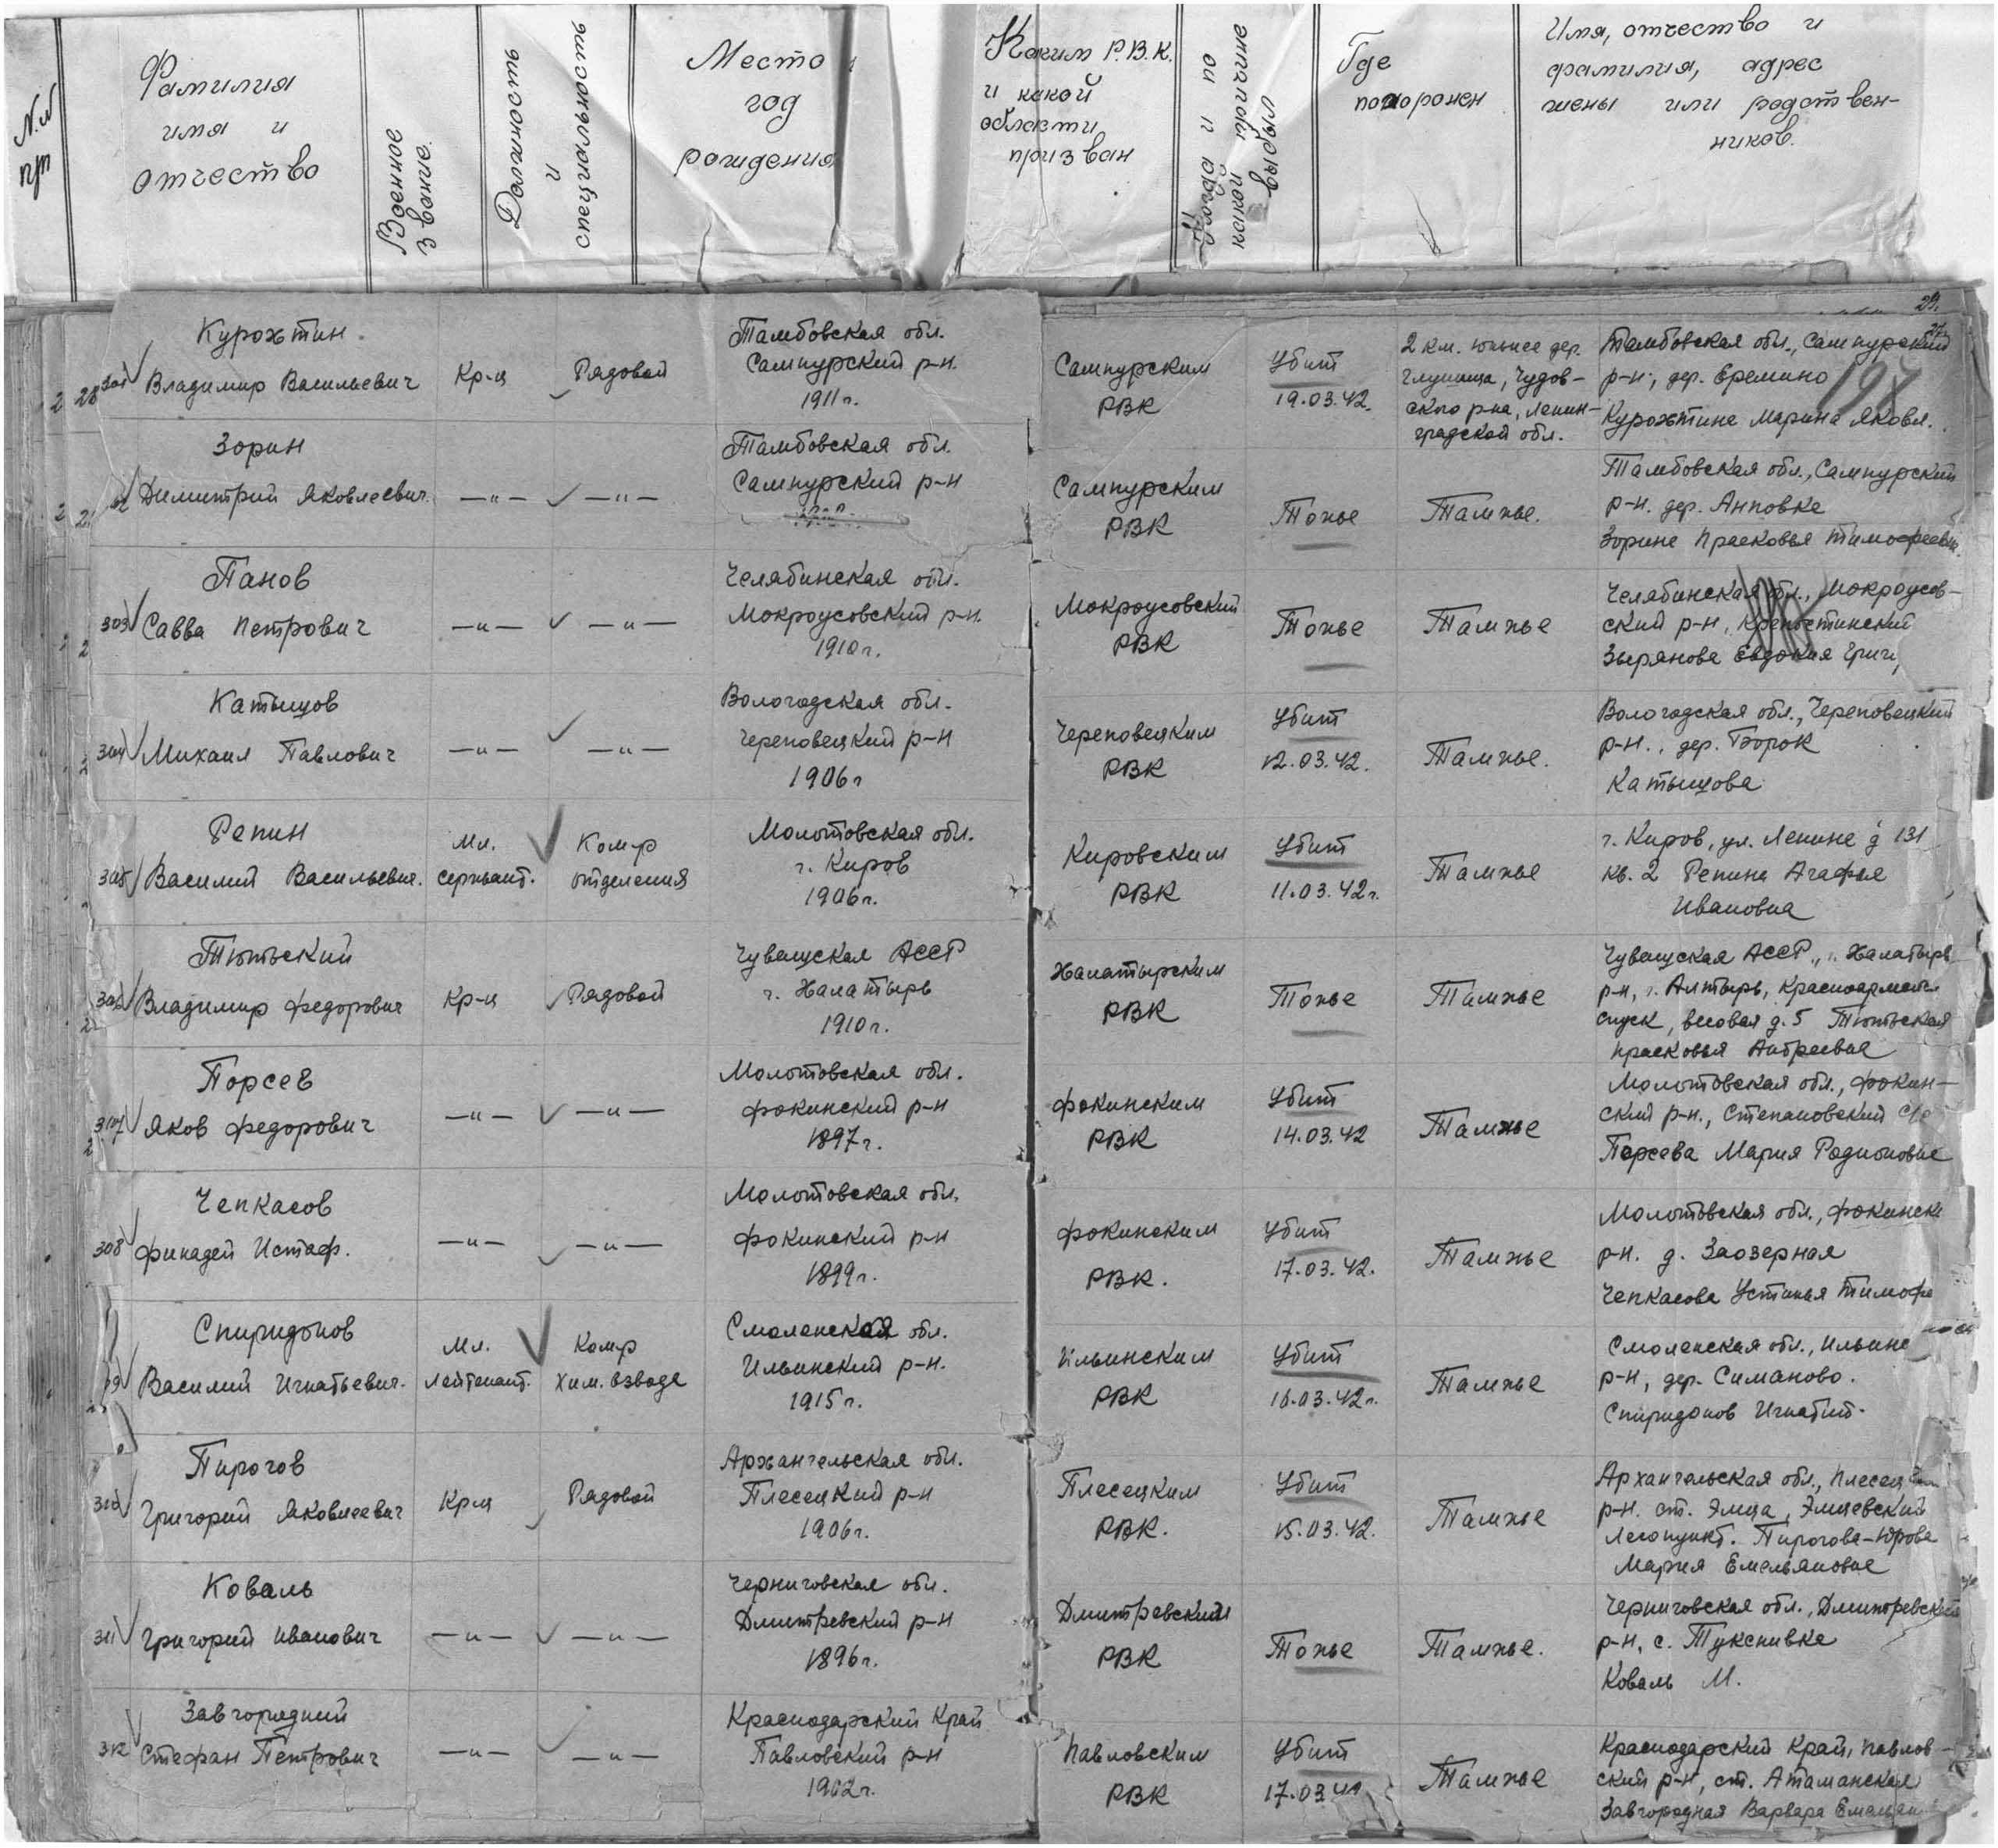 N.N
п/п
Фамилия
имя и
отчество
Военное
звание.
Должность
и
специальность
Место
год
рождения
Каким Р.В.К.
и какой
области
призван
Когда и по
какой причине
выбыл
Где
похоронен
Имя, отчество и
фамилия, адрес
жены или родствен-
ников.
29.
197
Курохтин
301 Владимир Васильевич
Кр-ц
Рядовой
Тамбовская обл.
Сампурский р-н.
1911г.
Сампурским
РВК
Убит
19.03.42.
2 км. южнее дер.
Глушица, Чудов-
ского р-на, Ленин-
градской обл.
Тамбовская обл., Сампурский
р-н, дер. Еремино
Курохтина Марина Яковл.
Зорин
Димитрий Яковлевич
—"—
—"—
Тамбовская обл.
Сампурский р-н
Сампурским
РВК
Тоже
Тамже.
Тамбовская обл., Сампурский
р-н. дер. Анповка
Зорина Прасковья Тимофеевн.
Панов
303 Савва Петрович
—"—
—"—
Челябинская обл.
Мокроусовский р-н.
1910г.
Мокроусовский
РВК
Тоже
Тамже
Челябинская обл., Мокроусов-
ский р-н, Крепостинский
Зырянова Евдокия Григ.
Катышов
304 Михаил Павлович
—"—
—"—
Вологодская обл.
Череповецкий р-н
1906г
Череповецким
РВК
Убит
12.03.42.
Тамже.
Вологодская обл., Череповецкий
р-н., дер. Борок
Катышова
Репин
305 Василий Васильевич.
Мл.
сержант.
Ком-р
отделения
Молотовская обл.
г. Киров
1906г.
Кировским
РВК
Убит
11.03.42г.
Тамже
г. Киров, ул. Ленина д 131
кв. 2 Репина Агафья
Ивановна
Тютьский
306 Владимир Федорович
Кр-ц
Рядовой
Чувашская АССР
г. Халатырь
1910г.
Халатырским
РВК
Тоже
Тамже
Чувашская АССР, г. Халатырь
р-н, г. Алтырь, Красноармей.
спуск, весовая д. 5 Тютьская
Прасковья Андреевна
Порсев
307 Яков Федорович
—"—
—"—
Молотовская обл.
Фокинский р-н
1897г.
Фокинским
РВК
Убит
14.03.42
Тамже
Молотовская обл., Фокин-
ский р-н., Степановский с/с
Порсева Мария Родионовна
Чепкасов
308 Финадей Истаф.
—"—
—"—
Молотовская обл.
Фокинский р-н
1899г.
Фокинским
РВК.
Убит
17.03.42.
Тамже
Молотовская обл., Фокинск
р-н. д. Заозерная
Чепкасова Устинья Тимофе
Спиридонов
Василий Игнатьевич.
Мл.
лейтенант.
Ком-р
хим. взвода
Смоленская обл.
Ильинский р-н.
1915г.
Ильинским
РВК
Убит
16.03.42г.
Тамже
Смоленская обл., Ильинс
р-н, дер. Симаново.
Спиридонов Игнатий.
Пирогов
310 Григорий Яковлевич
Кр-ц
Рядовой
Архангельская обл.
Плесецкий р-н
1906г.
Плесецким
РВК.
Убит
15.03.42.
Тамже
Архангельская обл., Плесец
р-н. ст. Эмца, Эмцевский
Лесопункт. Пирогова-Юрова
Мария Емельяновна
Коваль
311 Григорий Иванович
—"—
—"—
Черниговская обл.
Дмитревский р-н
1896г.
Дмитревским
РВК
Тоже
Тамже.
Черниговская обл., Дмитревский
р-н, с. Тукснивка
Коваль М.
Завгородний
312 Стефан Петрович
—"—
—"—
Краснодарский Край
Павловский р-н
1902г.
Павловским
РВК
Убит
17.03.42
Тамже
Краснодарский Край, Павлов-
ский р-н, ст. Атаманская
Завгородняя Варвара Емельян